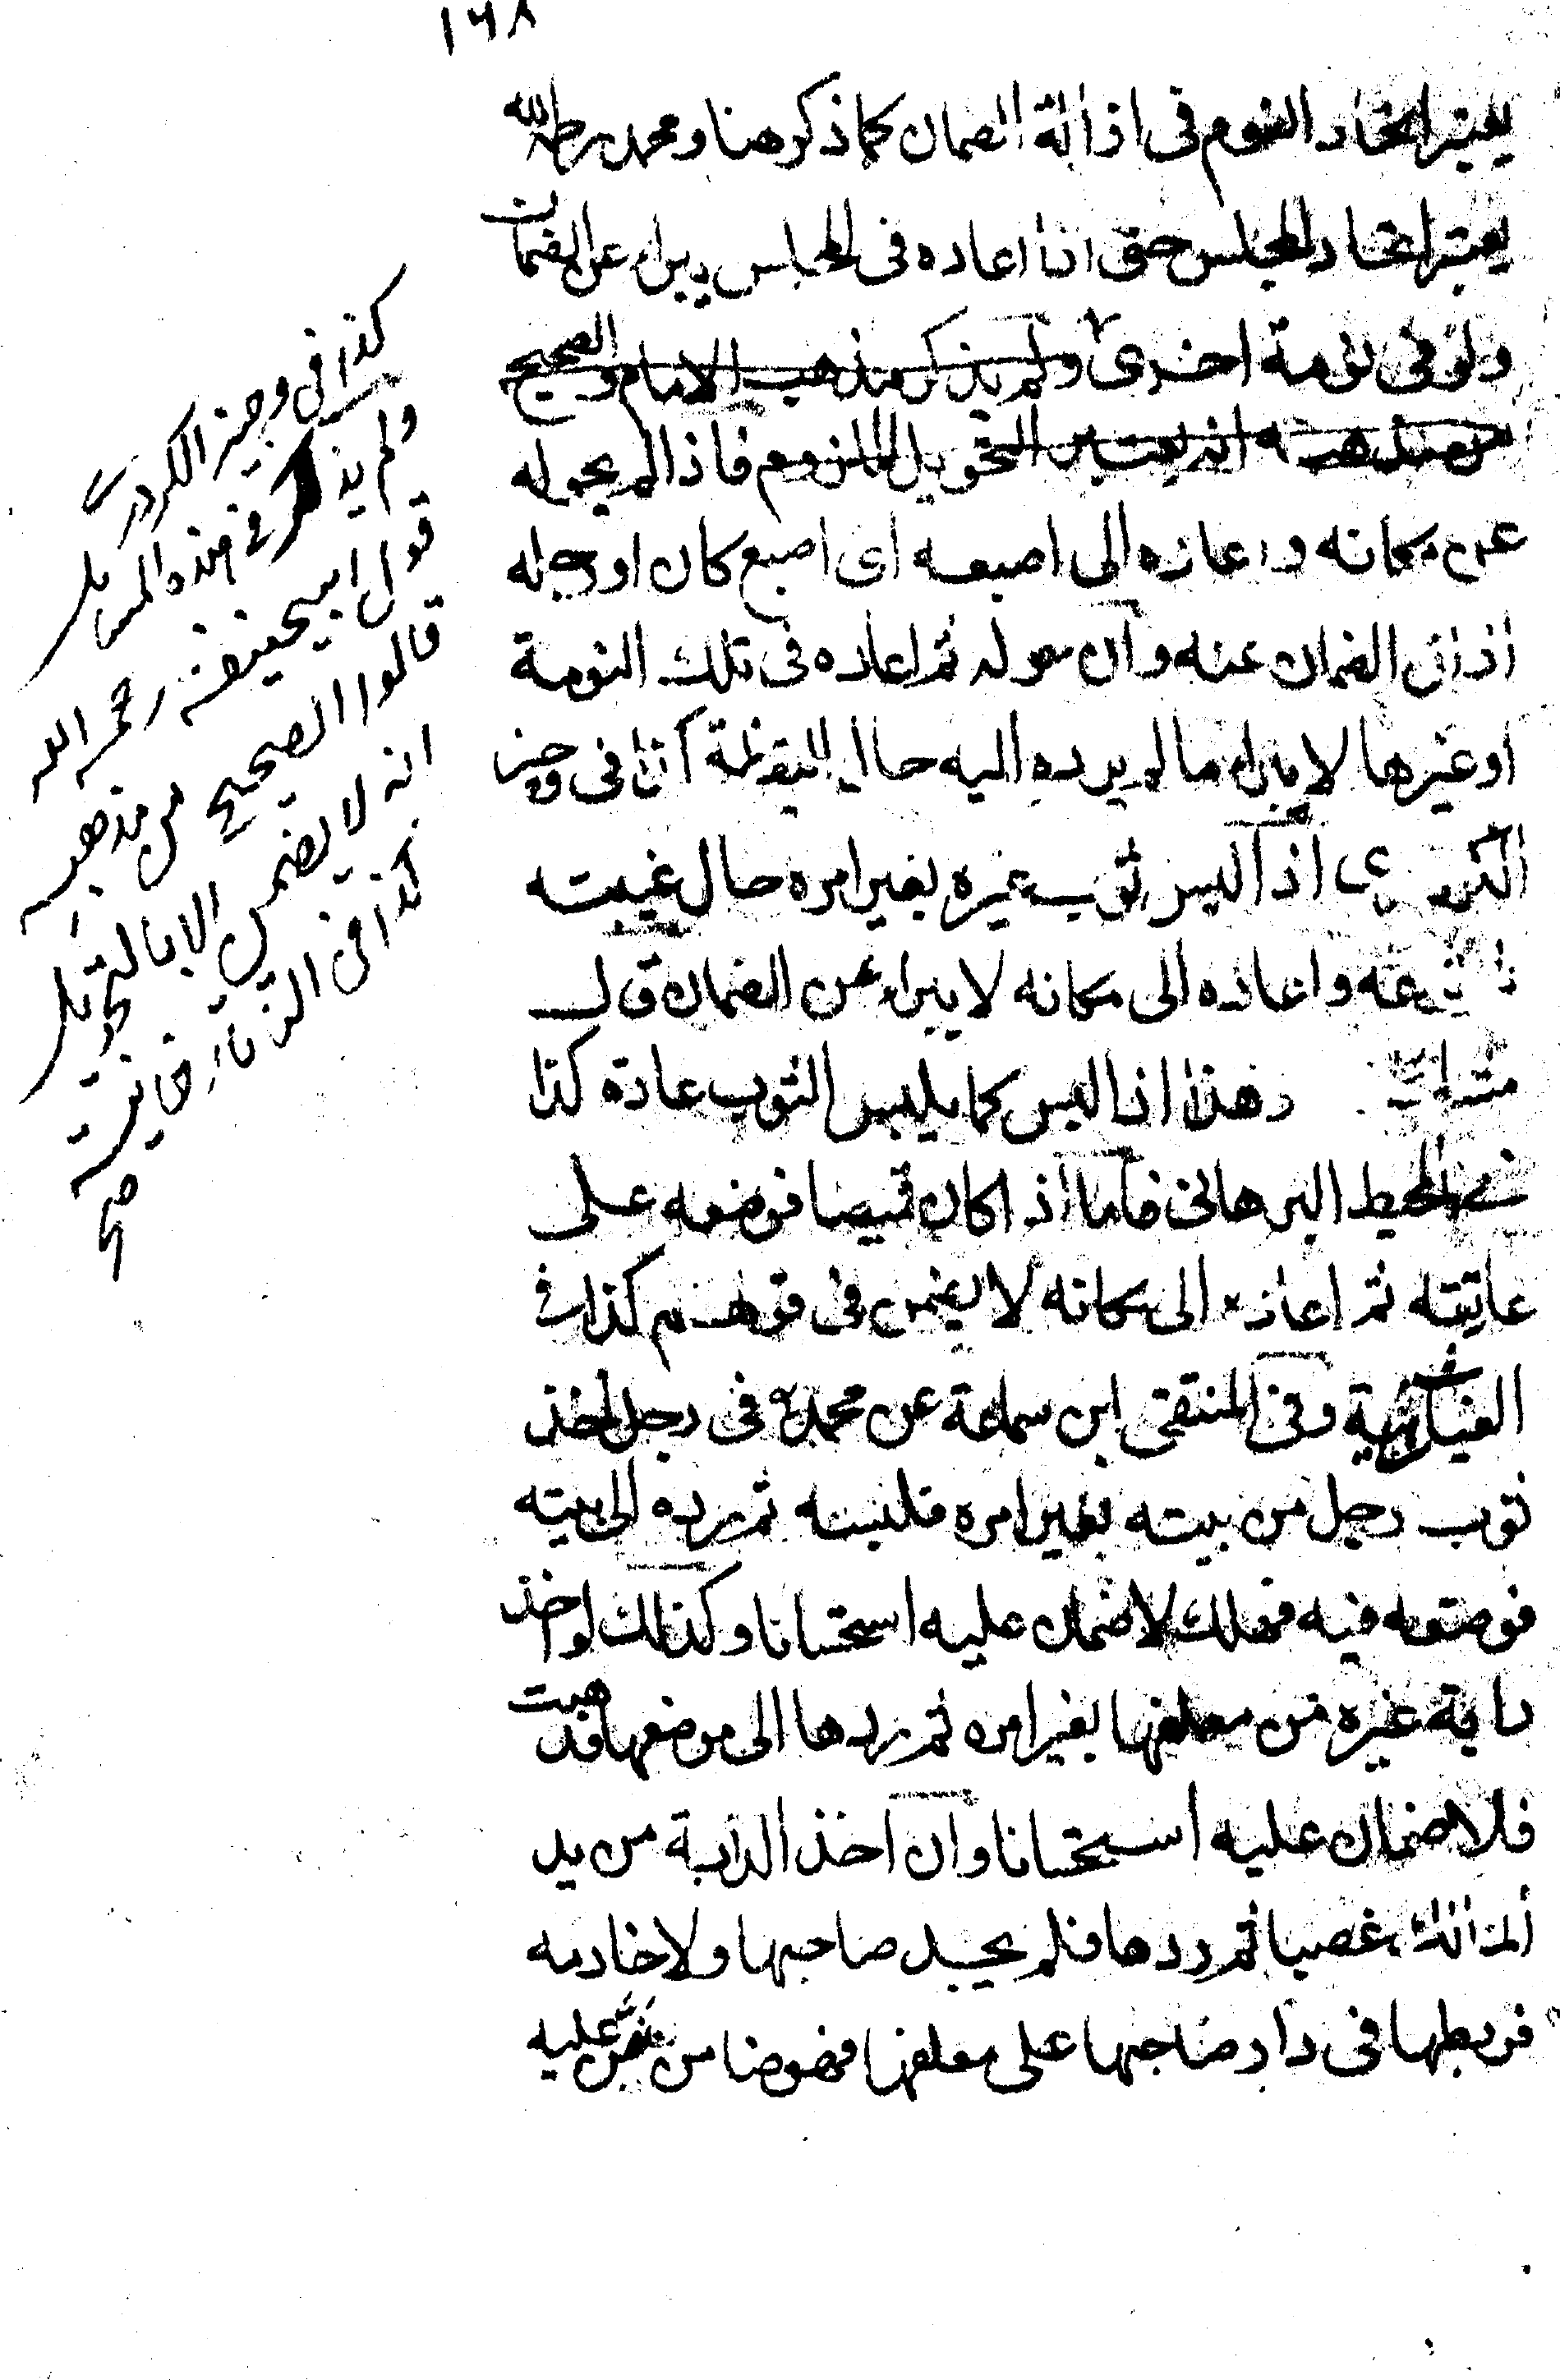 ١٦٨
يعتبر اتحاد النوم فى ازالة الضمان كما ذكر هنا ومحمد رحمه الله
يعتبر اتحاد المجلس حتى اذا اعاده فى المجلس يبراء عن الضمان
ولو فى نومة اخرى ولم يذكر مذهب الامام والصحيح
من مذهبه انه يعتبر التحويل اللزوم فاذا لم يحوله
عن مكانه واعاده الى اصبعه اى اصبع كان او رجله
اذ انى الضمان عنه وان حوله ثم اعاده فى تلك النومة
او غيرها لا يبراء ما لم يرده اليه حال اليقظة كذا فى وجيز
الكردرى اذا لبس ثوب غيره بغير امره حال غيبته
ثم نزعه واعاده الى مكانه لا يبراء عن الضمان قال
مشايخنا وهذا اذا لبس كما يلبس الثوب عادة كذا
فى المحيط البرهانى فاما اذا كان قميصا فوضعه على
عاتقه ثم اعاده الى مكانه لا يضمن فى قولهم كذا فى
الغياثية وفى المنتقى ابن سماعة عن محمد فى رجل اخذ
ثوب رجل من بيته بغير امره فلبسه ثم رده الى بيته
فوضعه فيه فهلك لا ضمان عليه استحسانا وكذلك لو اخذ
دابة غيره من معلفها بغير امره ثم ردها الى موضعها فذهبت
فلا ضمان عليه استحسانا وان اخذ الدابة من يد
المالك غصبا ثم ردها فلم يجد صاحبها ولا خادمه
فربطها فى دار صاحبها على معلفها فهو ضامن نص عليه
كذا فى وجيز الكردرى
ولم يذكر فى هذه المسايل
قول ابيحنيفة رحمه الله
قالوا الصحيح من مذهبه
انه لا يضمن الا بالتحويل
كذا فى التتارخانية
صح